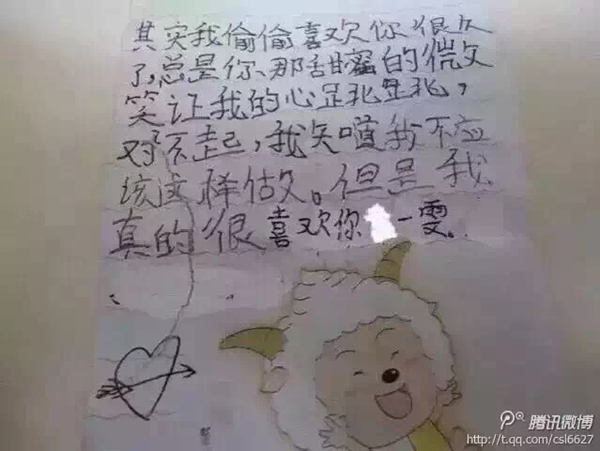 其实我偷偷喜欢你很久
了,总是你、那甜蜜的微文
笑让我的心足兆足兆,
对不起,我知道我不应
该这样做。但是我
真的很喜欢你 一雯。
腾讯微博
http://t.qq.com/csl6627